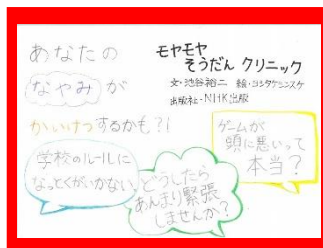 あなたの
なやみが
かいけつするかも?!
モヤモヤ
そうだん クリニック
文・池谷裕二 絵・ヨシタケシンスケ
出版社・NHK出版
学校のルールに
なっとくがいかない。
どうしたら
あんまり緊張
しませんか?
ゲームが
頭に悪いって
本当?